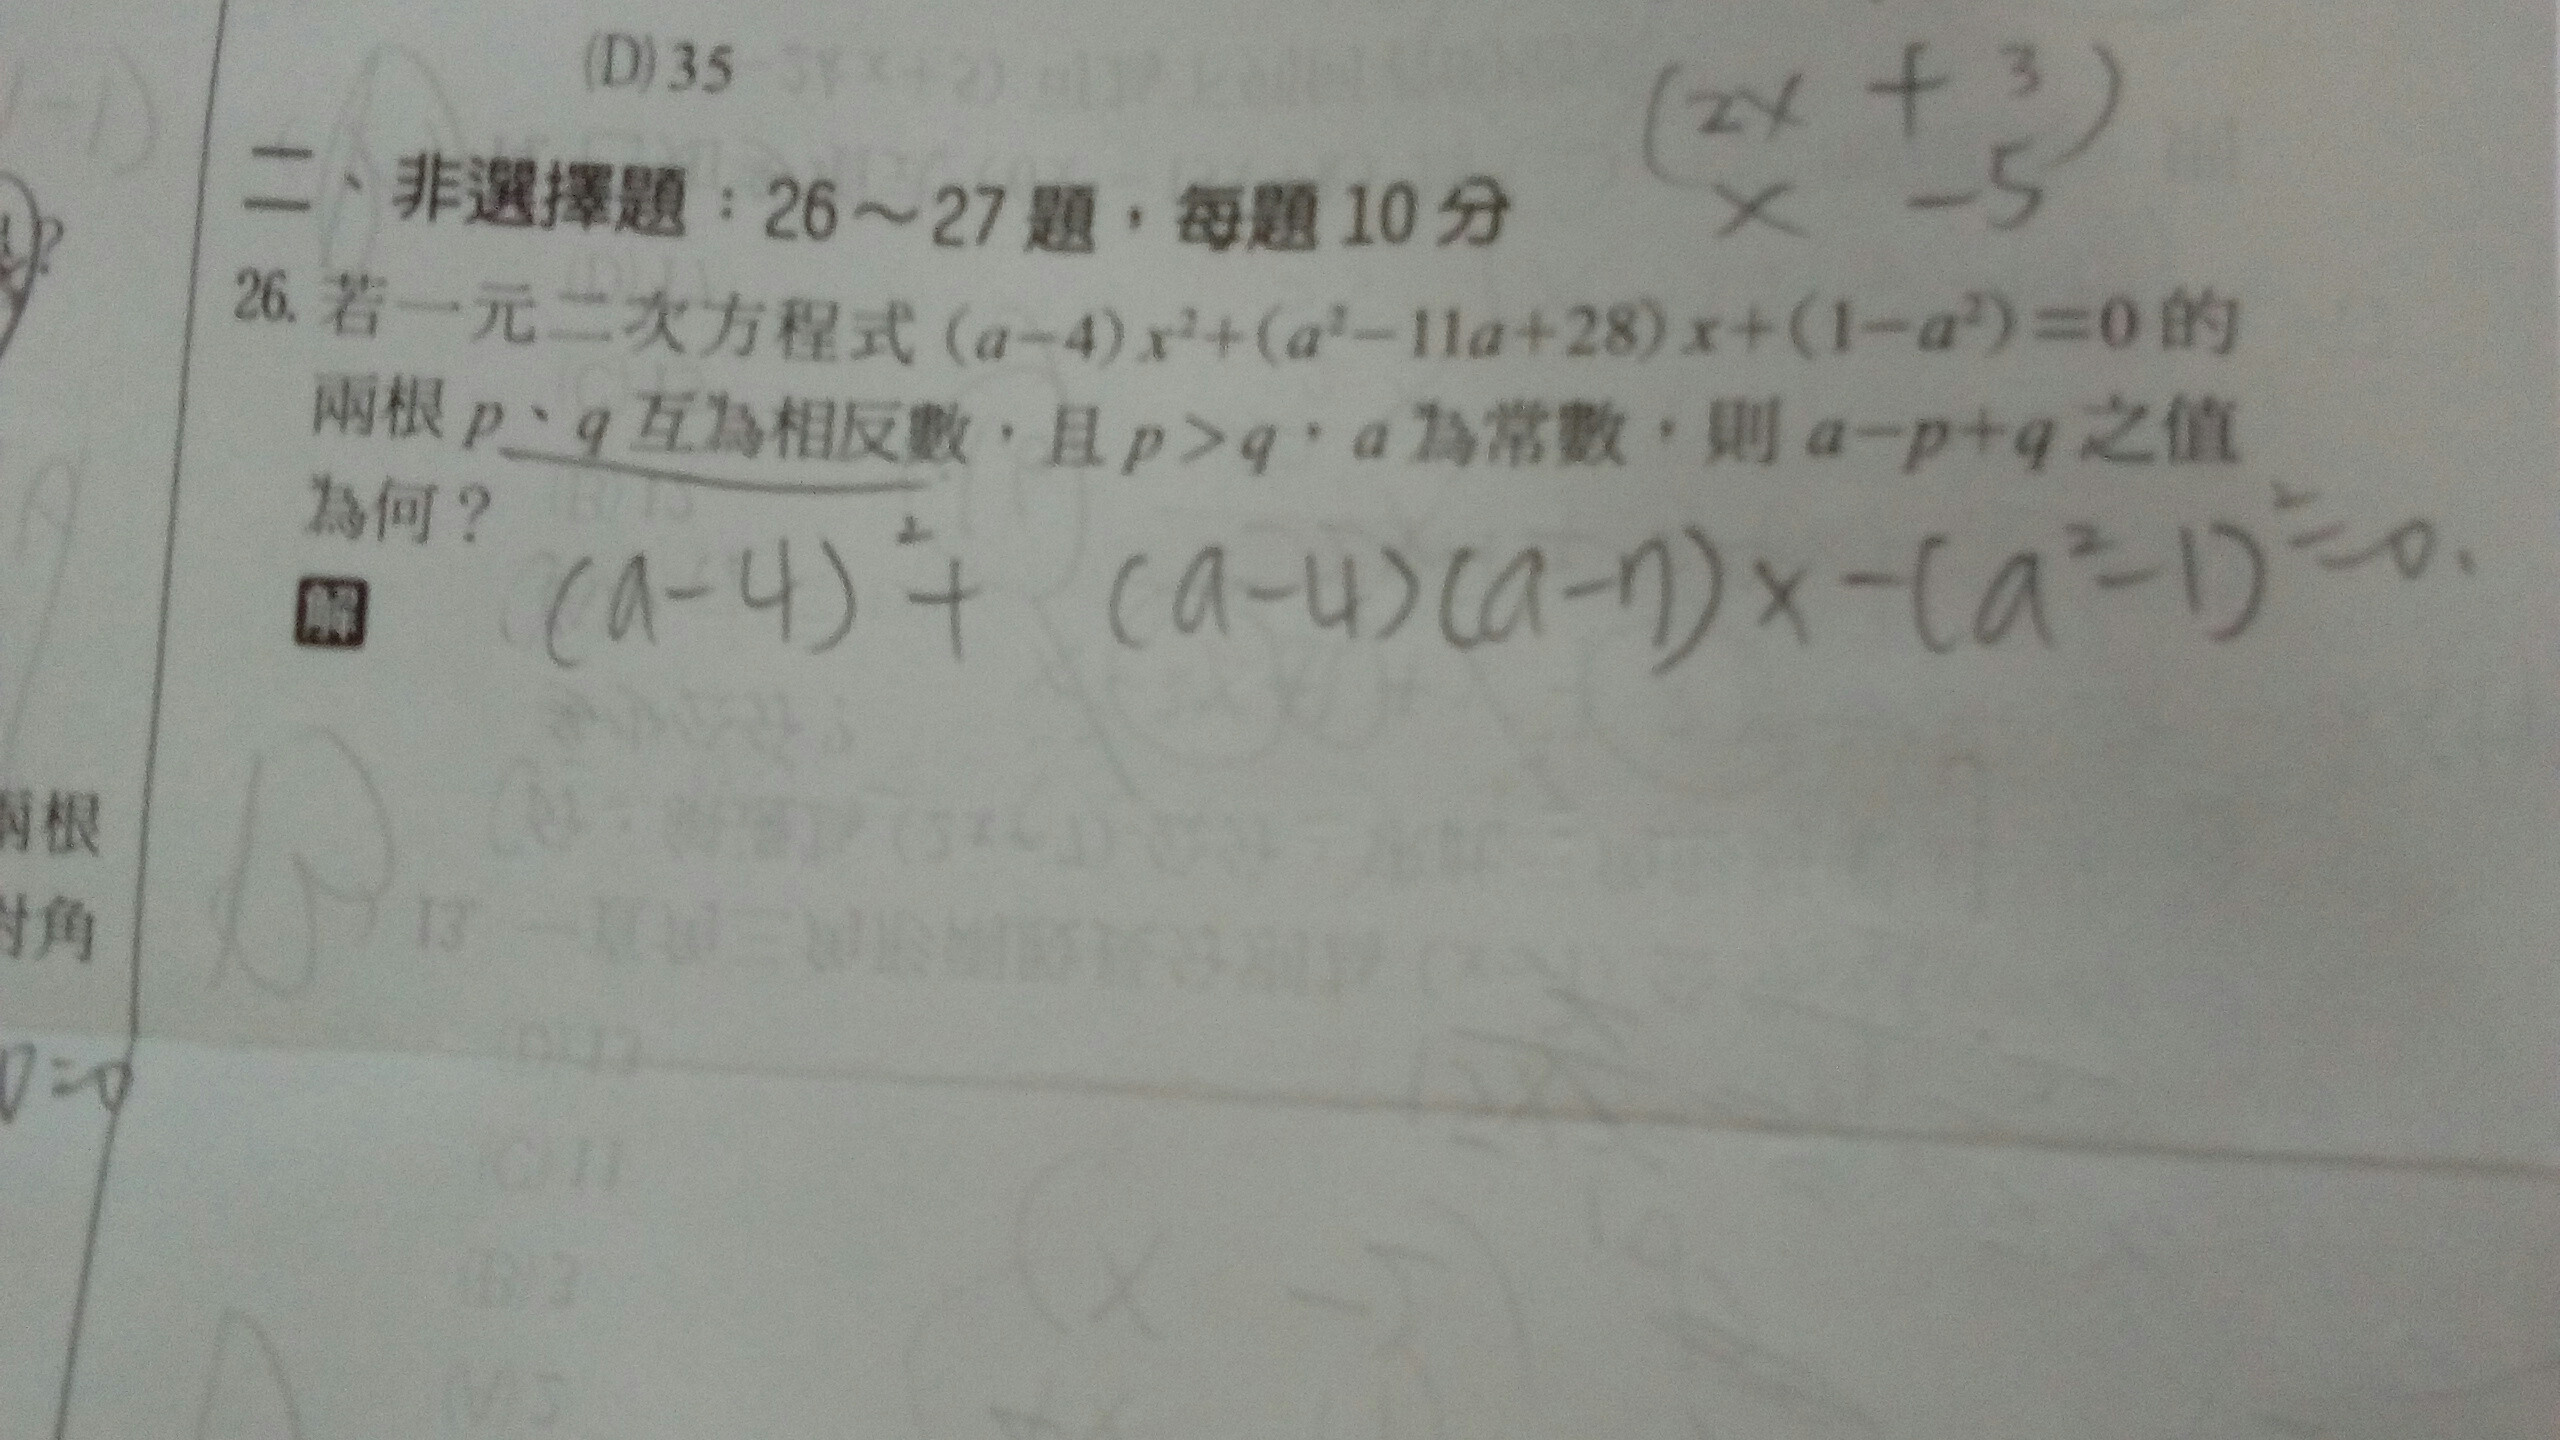 (D) 35
(2x + 3)
x -5
二、非選擇題：26～27 題，每題 10 分
26. 若一元二次方程式 (a−4) x²+(a²−11a+28) x+(1−a²)=0 的
兩根 p、q 互為相反數，且 p>q，a 為常數，則 a−p+q 之值
為何？
解
(a-4)² + (a-4)(a-7)x-(a²-1)²=0.
兩根
對角
=0